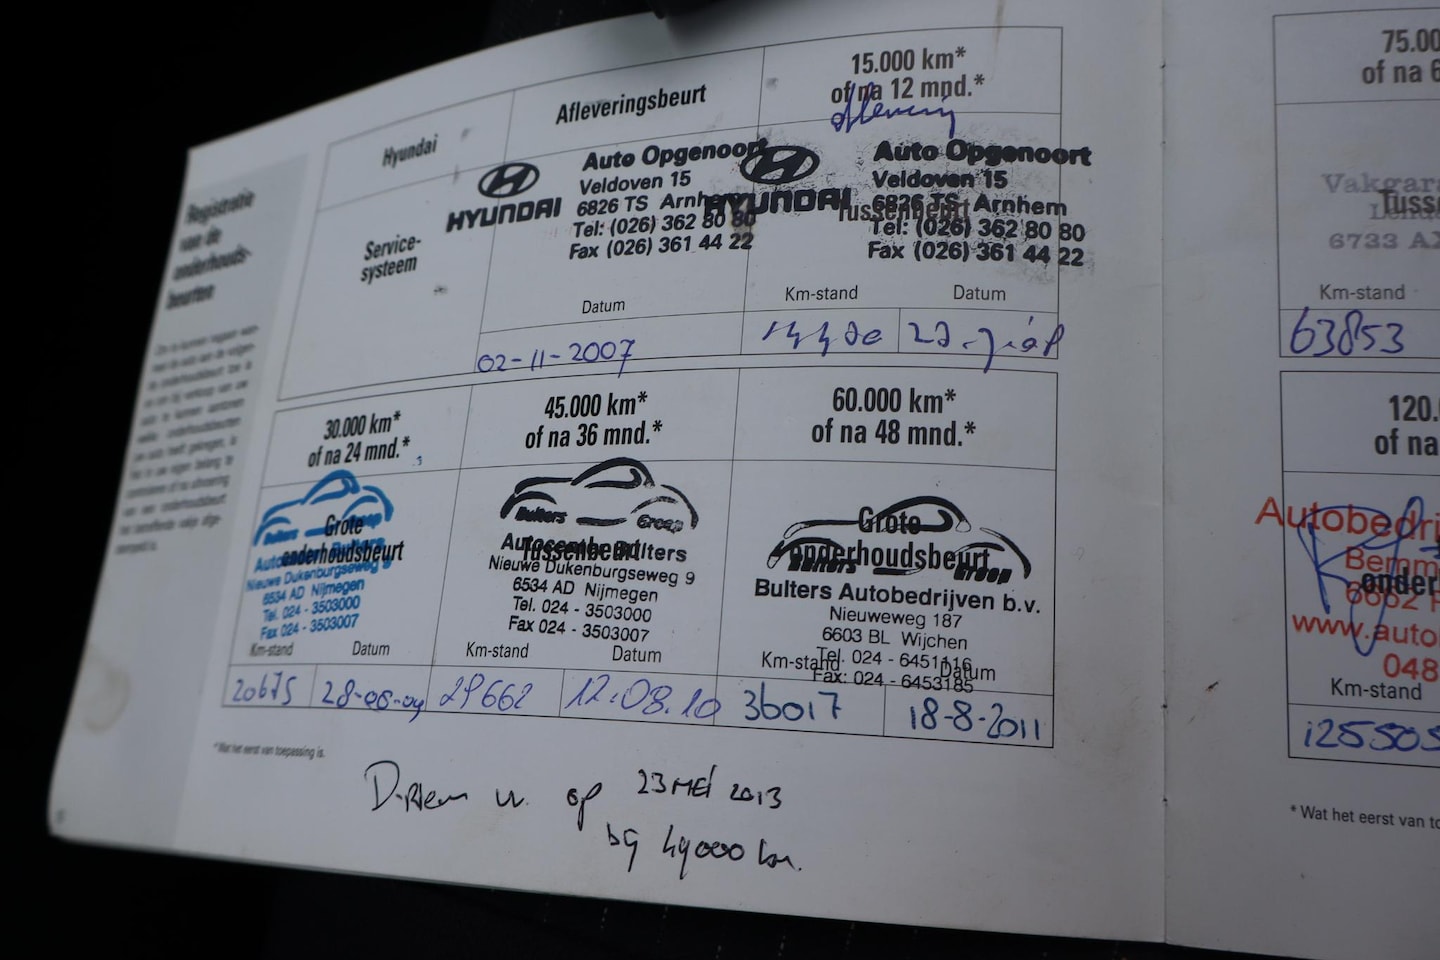 Registratie
van de
onderhouds-
beurten
Hyundai
Service-
systeem
Afleveringsbeurt
HYUNDAI
Auto Opgenoort
Veldoven 15
6826 TS Arnhem
Tel: (026) 362 80 80
Fax (026) 361 44 22
Datum
02-11-2007
15.000 km*
of na 12 mnd.*
HYUNDAI
Tussenbeurt
Auto Opgenoort
Veldoven 15
6826 TS Arnhem
Tel: (026) 362 80 80
Fax (026) 361 44 22
Km-stand
Datum
30.000 km*
of na 24 mnd.*
Bulters Groep
Grote
onderhoudsbeurt
Nieuwe Dukenburgseweg 9
6534 AD Nijmegen
Tel. 024 - 3503000
Fax 024 - 3503007
Km-stand
Datum
20675
28-08-09
45.000 km*
of na 36 mnd.*
Bulters Groep
Tussenbeurt
Bulters
Nieuwe Dukenburgseweg 9
6534 AD Nijmegen
Tel. 024 - 3503000
Fax 024 - 3503007
Km-stand
Datum
29662
12.08.10
60.000 km*
of na 48 mnd.*
Grote
onderhoudsbeurt
Bulters Groep
Bulters Autobedrijven b.v.
Nieuweweg 187
6603 BL Wijchen
Tel. 024 - 6451116
Fax: 024 - 6453185
Km-stand
Datum
36017
18-8-2011
* Wat het eerst van toepassing is.
D-Riem vv. op 23 MEI 2013
bij 49000 km.
75.00
of na 6
Vakgara
Tusse
6733 AX
Km-stand
63853
120.
of na
Autobedrij
Bemm
6662
onder
www.auto
048
Km-stand
125505
* Wat het eerst van to